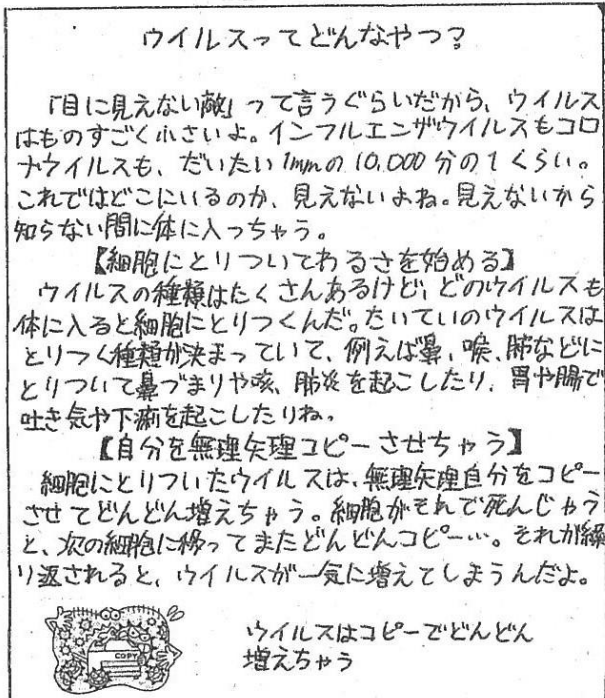 ウイルスってどんなやつ?
「目に見えない敵」って言うぐらいだから、ウイルス
はものすごく小さいよ。インフルエンザウイルスもコロ
ナウイルスも、だいたい1mmの10,000分の1くらい。
これではどこにいるのか、見えないよね。見えないから
知らない間に体に入っちゃう。
【細胞にとりついてわるさを始める】
ウイルスの種類はたくさんあるけど、どのウイルスも
体に入ると細胞にとりつくんだ。たいていのウイルスは
とりつく種類が決まっていて、例えば鼻、喉、肺などに
とりついて鼻づまりや咳、肺炎を起こしたり、胃や腸で
吐き気や下痢を起こしたりね。
【自分を無理矢理コピーさせちゃう】
細胞にとりついたウイルスは、無理矢理自分をコピー
させてどんどん増えちゃう。細胞がそれで死んじゃう
と、次の細胞に移ってまたどんどんコピー…。それが繰
り返されると、ウイルスが一気に増えてしまうんだよ。
COPY
ウイルスはコピーでどんどん
増えちゃう